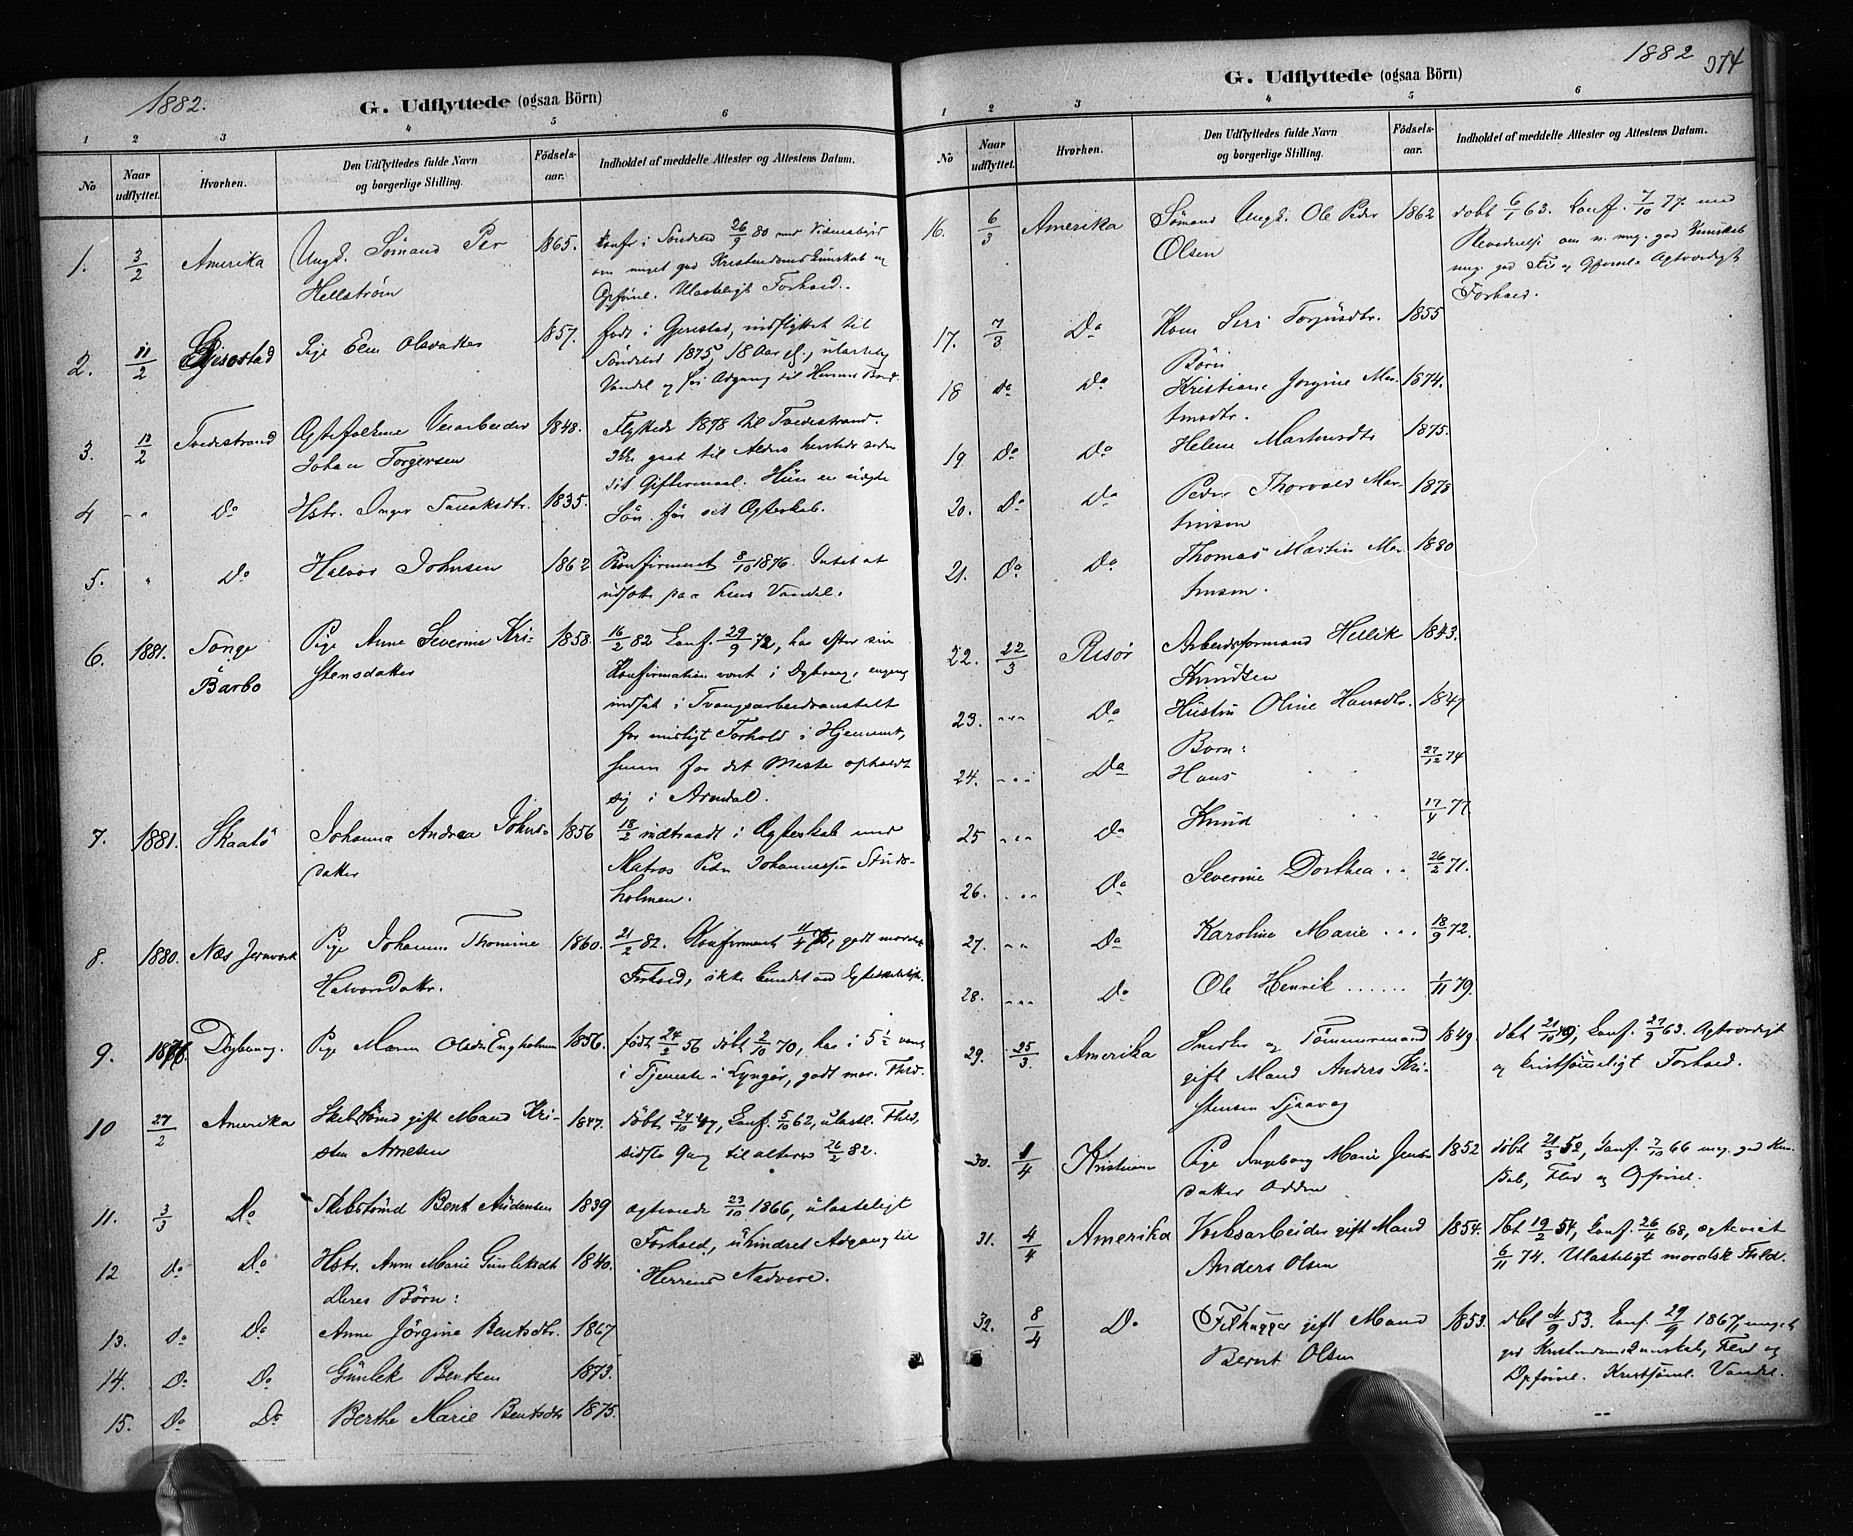 1882.
G. Udflyttede (ogsaa Börn)
1 2 3 4 5 6
No
Naar udflyttet.
Hvorhen.
Den Udflyttedes fulde Navn
og borgerlige Stilling.
Födsels-
aar.
Indholdet af meddelte Attester og Attestens Datum.
1. 3/2 Amerika Ungk. Sömand Per 1865. Konfr. i Söndeled 26/9 80 med Vidnesbyrd
Hellström om meget god Kristendomskundskab og
Opförsel. Ulasteligt Forhold.
2. 11/2 Gjerestad Pige Elen Olsdatter 1857. født i Gjerestad, indflyttet til
Söndeled 1875, 18 Aar gl., ulastelig
Vandel og fri Adgang til Herrens Bord.
3. 12/2 Tvedestrand Ægtefolkene Veiarbeider 1848. Flyttede 1878 til Tvedestrand.
Johan Torgersen Ikke gaat til Alters herstede siden
sit Giftermaal. Hun en uægte
4 " " Do Hstr. Inger Taraldsdtr. 1835. Sön för sit Ægteskab.
5. " Do Halvor Johnsen 1862 Konfirmeret 8/10 1876. Intet at
udsætte paa hans Vandel.
6. 1881. Songe Pige Anne Severine Kri- 1858. 16/2 82 Konf. 29/9 72, har efter sin
Barbo stensdatter Konfirmation været i Dybvaag, engang
indsat i Tvangsarbeidsanstalt
for usedligt Forhold i Hjemmet,
senere for det Meste opholdt
sig i Arendal.
7. 1881. Skaatö Johanna Andrea Johns- 1856 18/2 indtraadt i Ægteskab med
datter Matros Peder Johannessen Studs-
holmen.
8. 1880. Næs Jernværk Pige Johanne Thomine 1860. 21/2 82. Konfirmeret 11/4 75, godt moralsk
Halvorsdatter. Forhold, ikke bundet ved Ægteskabslöfte.
9. 1878. Dybvaag. Pige Maren Oledie Engholmen 1856. født 24/2 56 døbt 2/10 70, har i 5 1/2 været
i Tjeneste i Lyngör, godt mor. Fhld.
10 27/2 Amerika Skibstömd gift Mand Kri- 1847. döbt 24/10 47, Konf. 5/10 62, ulastl. Fhld,
sten Arnesen sidste Gang til alters 26/2 82.
11. 3/3 Do Skibstömd Bent Audensen 1839 ægteviede 23/10 1866, ulasteligt
Forhold, uhindret Adgang til
12 Do Do Hstr. Anne Marie Gunleksdt 1840. Herrens Nadvere.
Deres Börn:
13. Do Do Anne Jörgine Bentsdtr. 1867
14. Do Do Gunlek Bentsen 1873.
15. Do Do Berthe Marie Bentsdtr 1875.
1882 374
G. Udflyttede (ogsaa Börn)
1 2 3 4 5 6
No
Naar udflyttet.
Hvorhen.
Den Udflyttedes fulde Navn
og borgerlige Stilling.
Födsels-
aar.
Indholdet af meddelte Attester og Attestens Datum.
16. 6/3 Amerika Sömand Ungk. Ole Peder 1862 döbt 6/1 63. Konf. 7/10 77. med
Olsen om n. meg. god Kundskab
meg. god Flid og Opförsel. Agtværdigt
Forhold.
17. 7/3 Do Kone Siri Torjusdtr. 1855
Börn
18 Do Do Kristiane Jorgine Mar- 1874.
tinsdtr.
19 Do Do Helene Martinsdtr 1875.
20. Do Do Peder Thorvald Mar- 1878
tinsen
21. Do Do Thomas Martin Mar- 1880
tinsen.
22. 22/3 Risör Arbeidsformand Hellik 1843.
Knudsen
23. " " " Do Hustru Oline Hansdtr. 1847
Born:
24. " " " Do Hans 27/12 74
25 " " " Do Knud 17/4 77.
26. " " " Do Severine Dorthea . . 26/2 71.
27. " " Do Karoline Marie . . . 18/9 72.
28. " " " Do Ole Henrik . . . . . . 1/11 79.
29. 25/3. Amerika Snedker og Tömmermand 1849. döbt 21/10 49, Konf. 27/9 63. Agtværdigt
gift Mand Anders Kri- og kristsömmeligt Forhold.
stensen Sjaavaag
30. 1/4 Kristiania Pige Ingeborg Marie Jens- 1852 döbt 21/3 52, Konf. 7/10 66 meg. god Kun-
datter Odden skab, Flid og Opförsel.
31. 4/4 Amerika Verksarbeider gift Mand 1854. döbt 19/2 54, Konf. 26/4 68, ægteviet
Anders Olsen 6/11 74. Ulasteligt moralsk Fhld.
32. 8/4 Do Filhugger gift Mand 1853. döbt 4/9 53. Konf. 29/9 1867, meget
Bernt Olsen god Kristendomskundskab, Flid og
Opförsel. Kristsömel. Vandel.